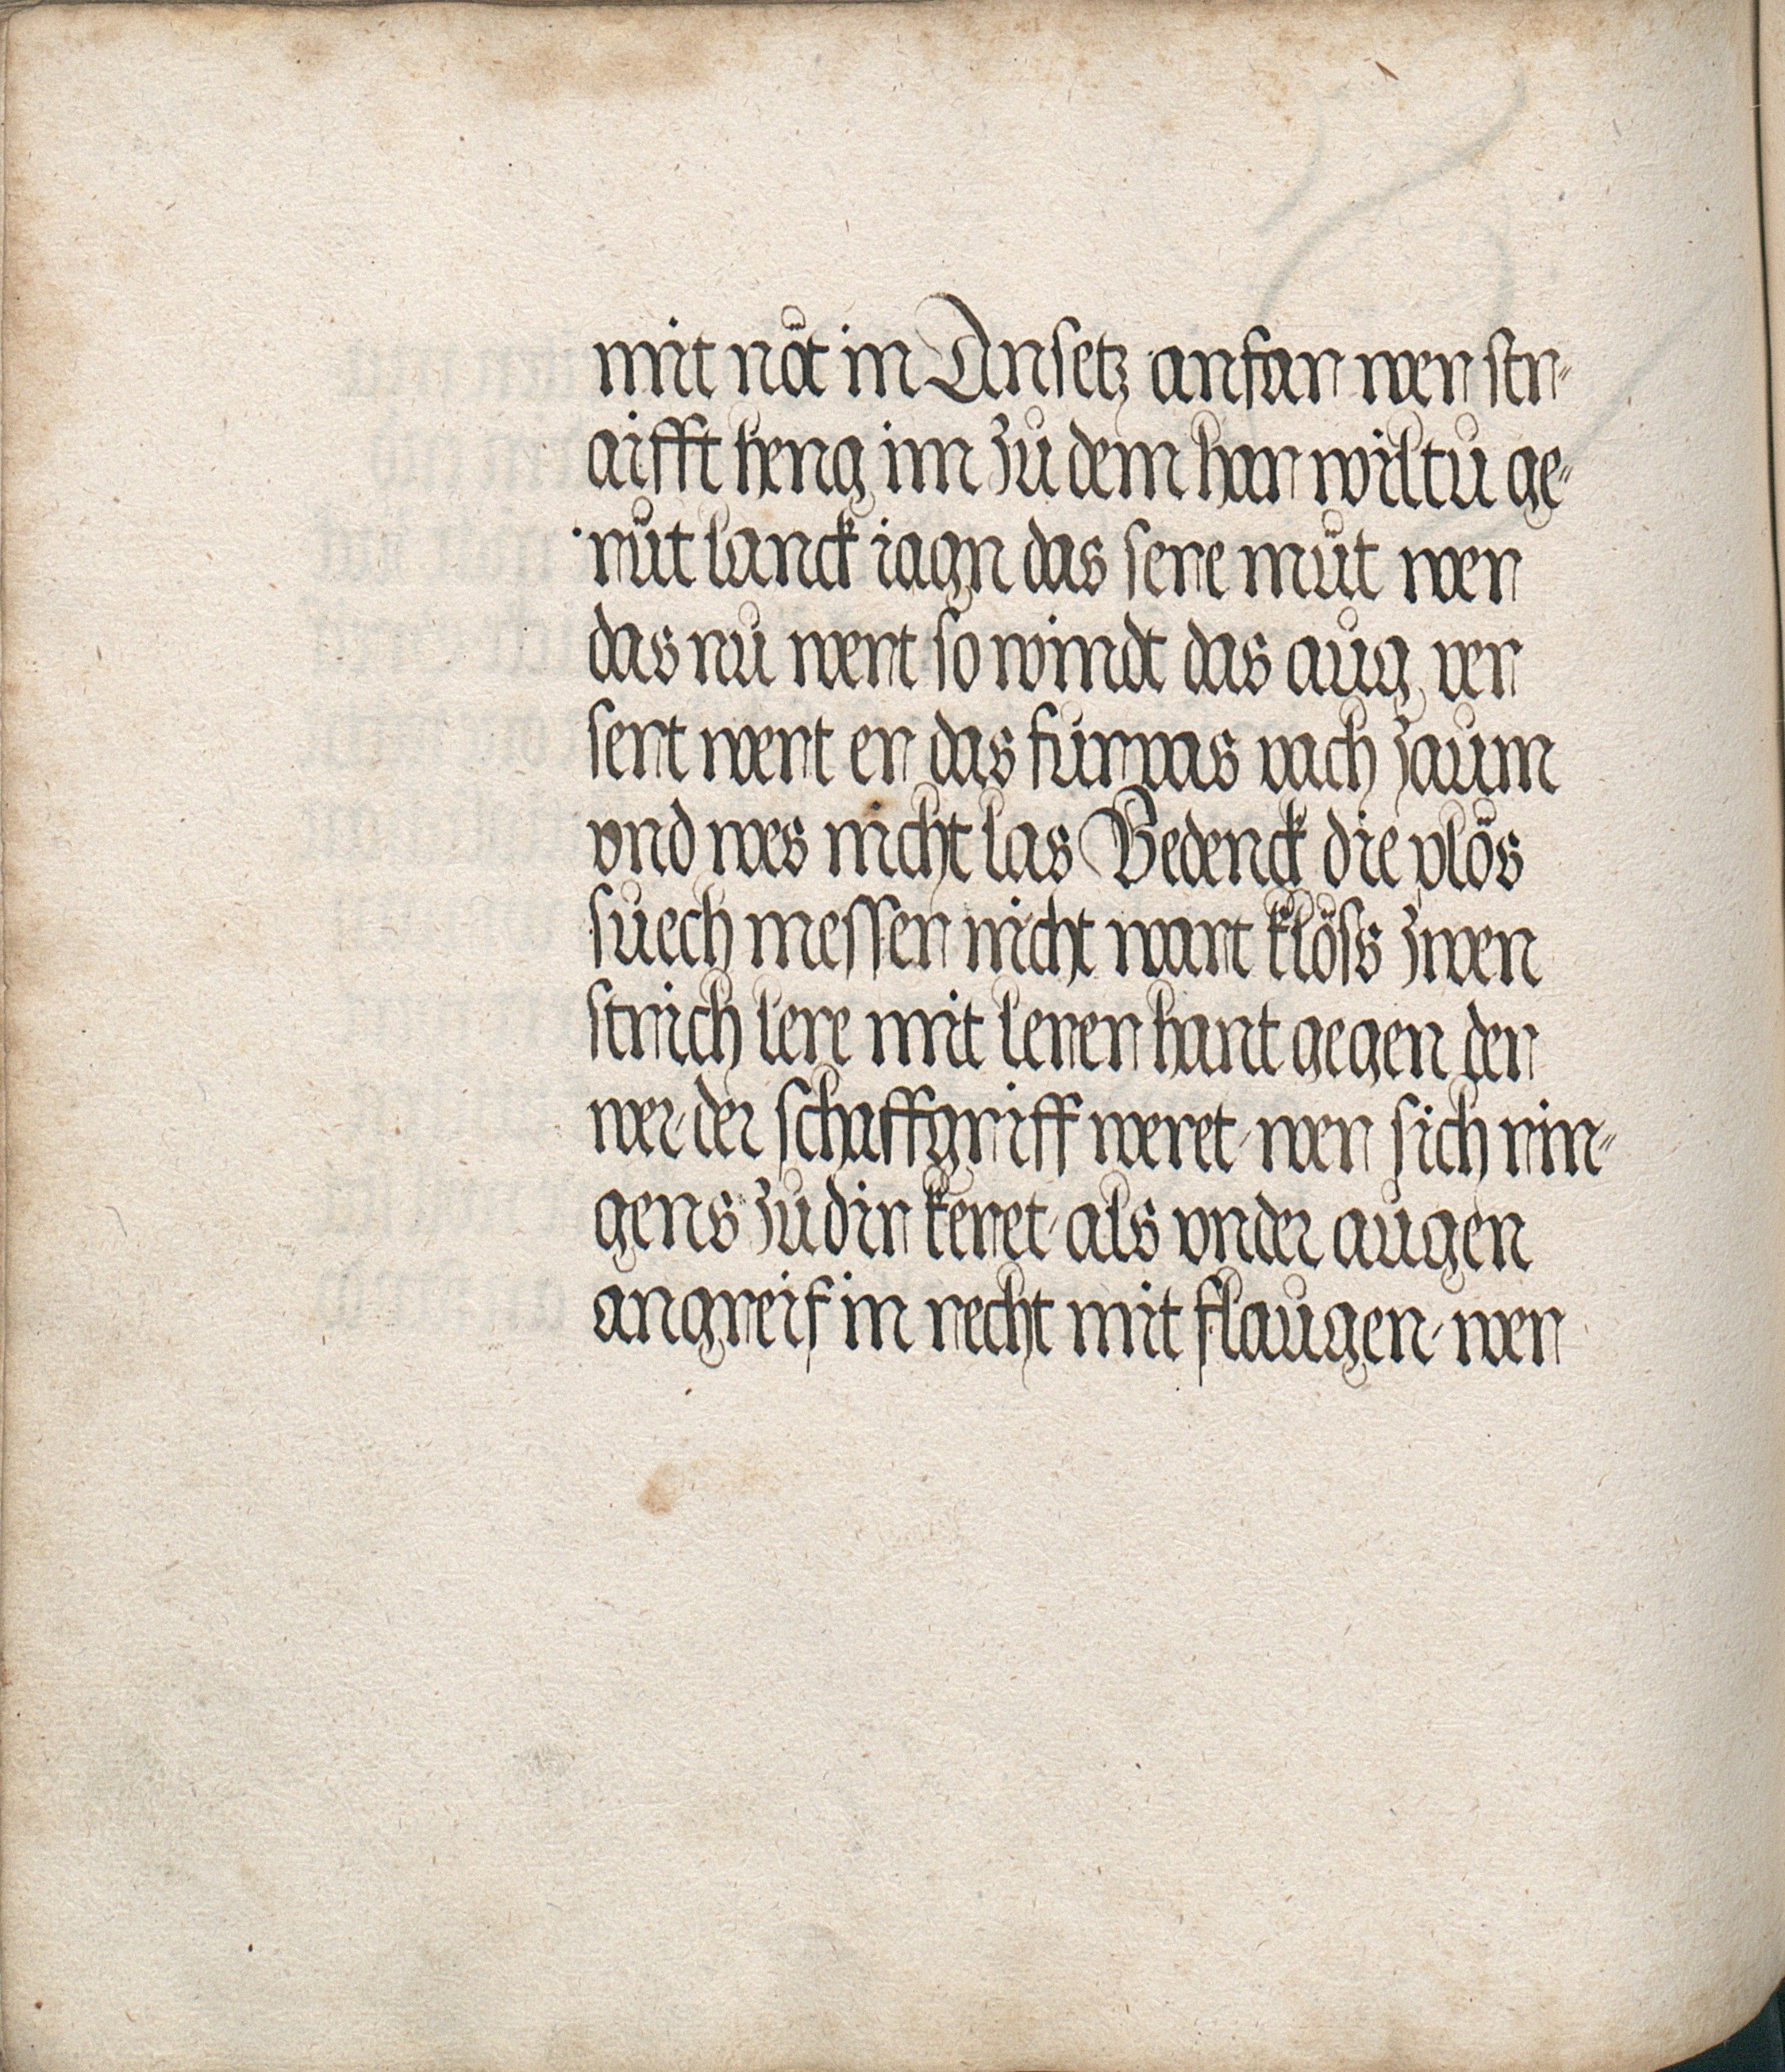 mit nöt in Ansetz anfar wer str„
aifft heng im zů dem har wiltu ge„
růt lanck iagn das sere můt wer
das nů wert so windt das aůg ver
sert wert er das fůrwas vach zaům
vnd wes nicht las Bedenck die plös
sůech messer nicht wart klöss zwen
strich lere mit lerer hant gegen der
wer der schaffgriff weret wer sich rin„
gens zů dir keret als vnder aůgen
angreif in recht mit flaůgen wer